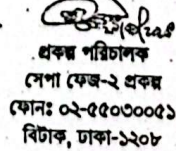 প্রকল্প পরিচালক
সেপা ফেজ-২ প্রকল্প
ফোনঃ ০২-৫৫০৩০০৫১
বিটাক, ঢাকা-১২০৮